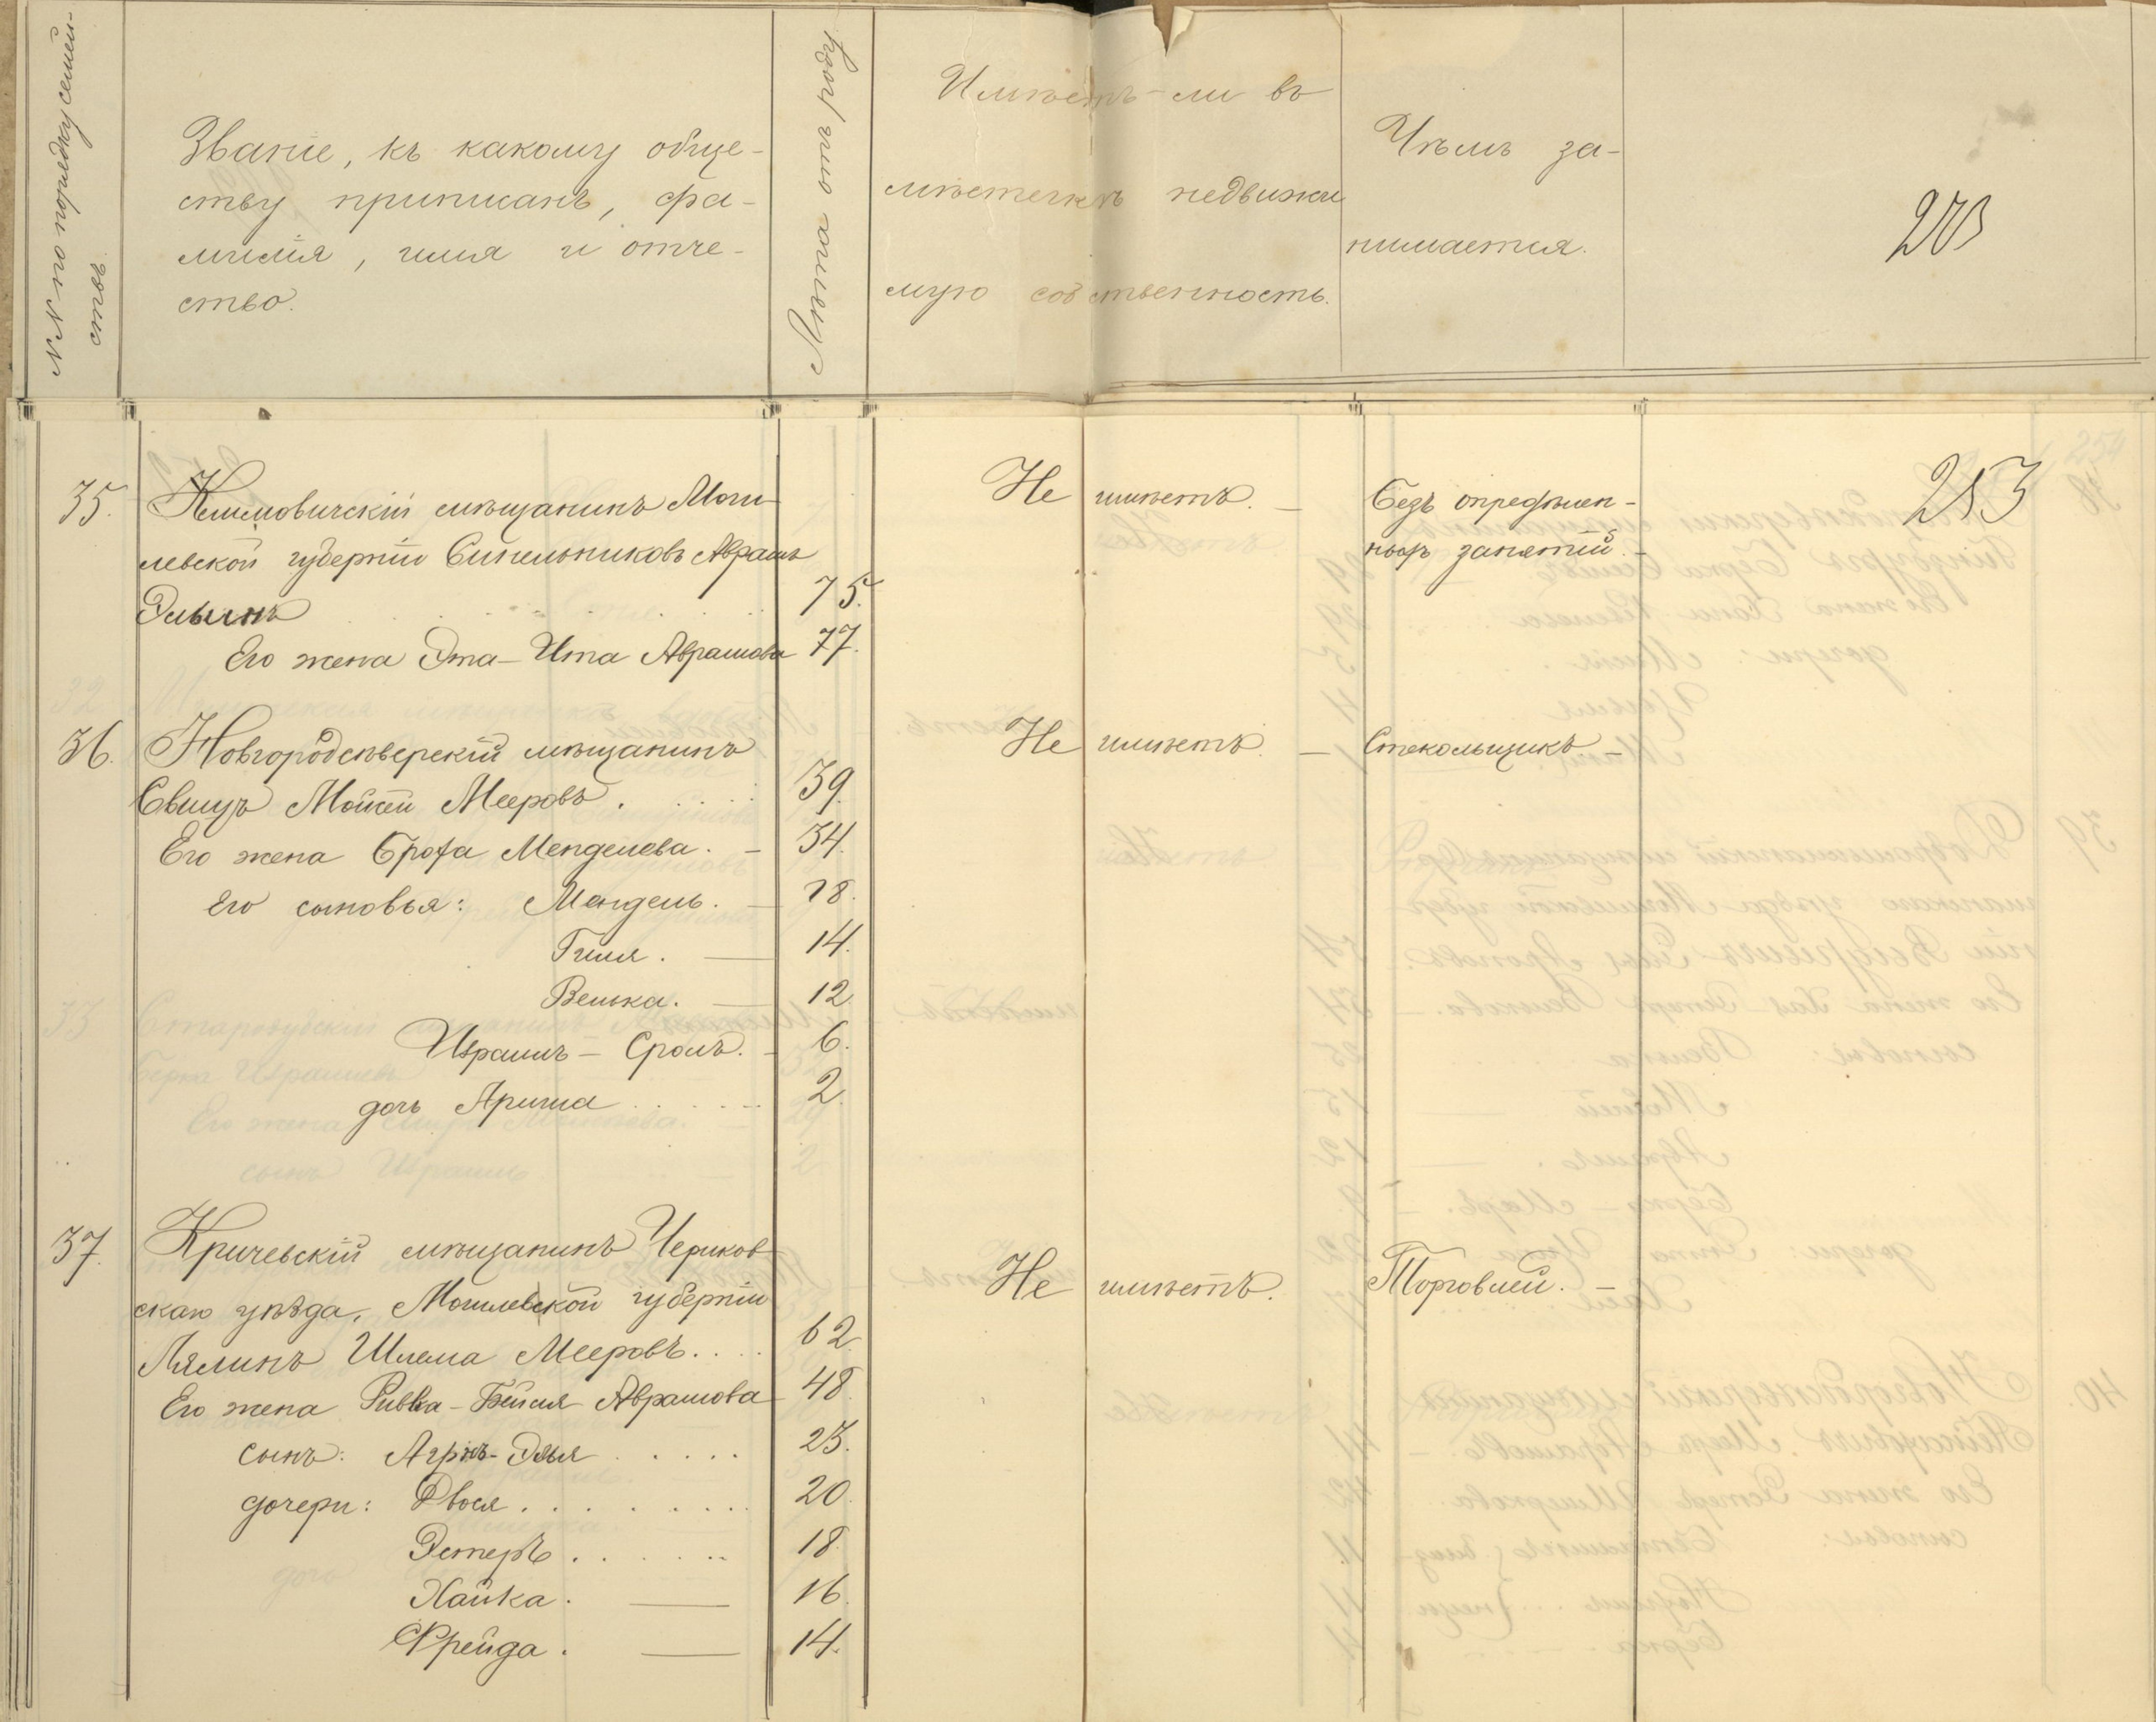 №№ по порядку семей-
ствъ.
Званіе, къ какому обще-
ству приписанъ, фа-
милія, имя и отче-
ство.
Лѣта отъ роду
Имѣетъ-ли въ
мѣстечкѣ недвижи
мую собственность.
Чѣмъ за-
нимается.
203
253
35. Климовичскій мѣщанинъ Моги-
левской губерніи Синельниковъ Абрамъ
Эльинъ 75.
Его жена Эта-Ита Абрамова 77.
Не имѣетъ. —
Безъ опредѣлен-
ныхъ занятій. —
36. Новгородсѣверскій мѣщанинъ
Свицъ Мойсей Мееровъ. 39.
Его жена Броха Менделева. — 34.
Его сыновья: Мендель. — 18.
Гиля. — 14.
Велька. — 12
Израиль — Сроль. — 6.
дочь Ариша 2.
Не имѣетъ. —
Стекольщикъ. —
37. Кричевскій мѣщанинъ Чериков
скаго уѣзда, Могилевской губерніи
Лялинъ Шлема Мееровъ.... 62.
Его жена Ривка-Бейля Абрамова 48.
сынъ: -Элья ..... 23.
дочери: Двося......... 20.
Эстеръ...... 18
Хайка. — 16.
Фрейда. — 14.
Не имѣетъ.
Торговлей. —